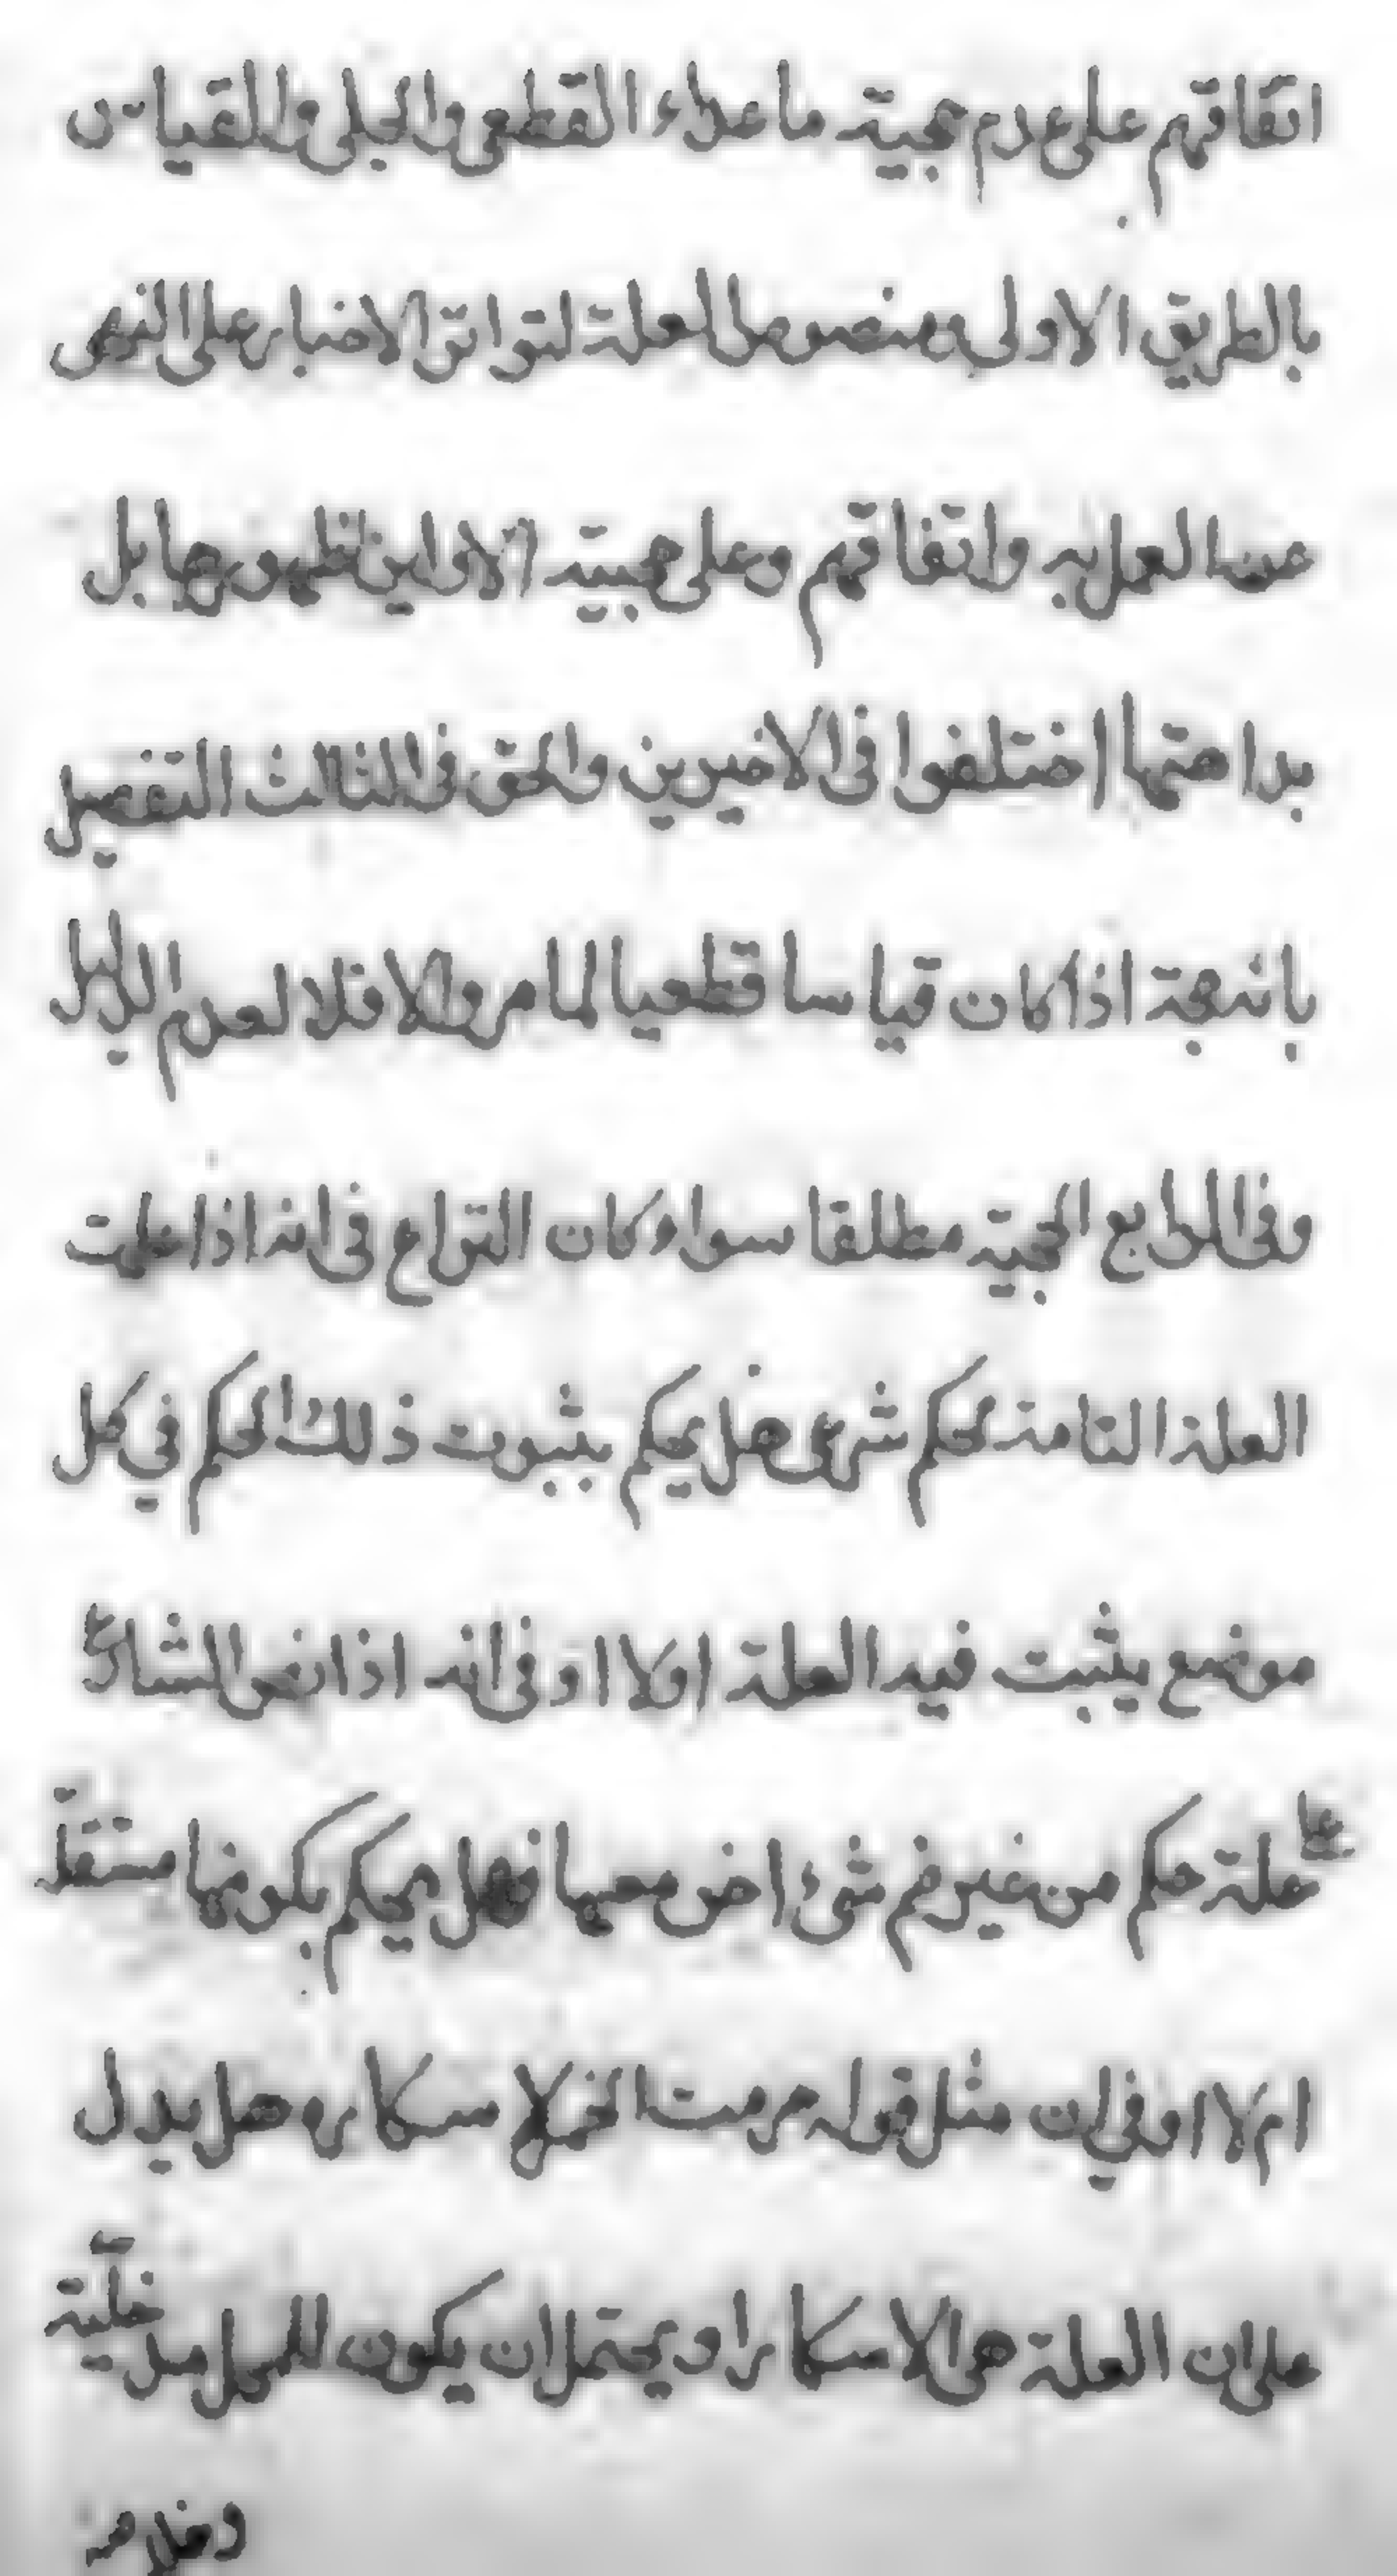 اتفاقهم على عدم حجية ما عداء القطعى والجلى والقياس
بالطريق الاولى ومنصوص العلة لتواتر الاخبار على النهى
عن العمل به واتفاقهم وعلى حجية الاولين لظهورها بل
بداهتها اختلفوا فى الاخيرين والحق فى الثالث التفصيل
بانه حجة اذا كان قياسا قطعيا لما مر والا فلا لعدم الدليل
وفى الرابع الحجية مطلقا سواء كان النزاع فى انه اذا علمت
العلة التامة لحكم شرعى هل يحكم بثبوت ذلك الحكم في كل
موضع يثبت فيه العلة اولا او فى انه اذا نص الشارع
على علة حكم من غير ضم شئ اخر معها فهل يحكم بكونها مستقلة
ام لا او في ان مثل قوله حرمت الخمر لاسكاره هل يدل
على ان العلة هى الاسكار او يحتمل ان يكون للمحل مدخلية